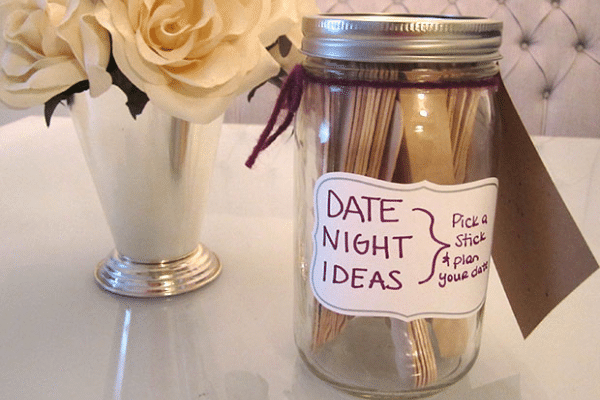 DATE
NIGHT
IDEAS
Pick a
Stick
& plan
your date